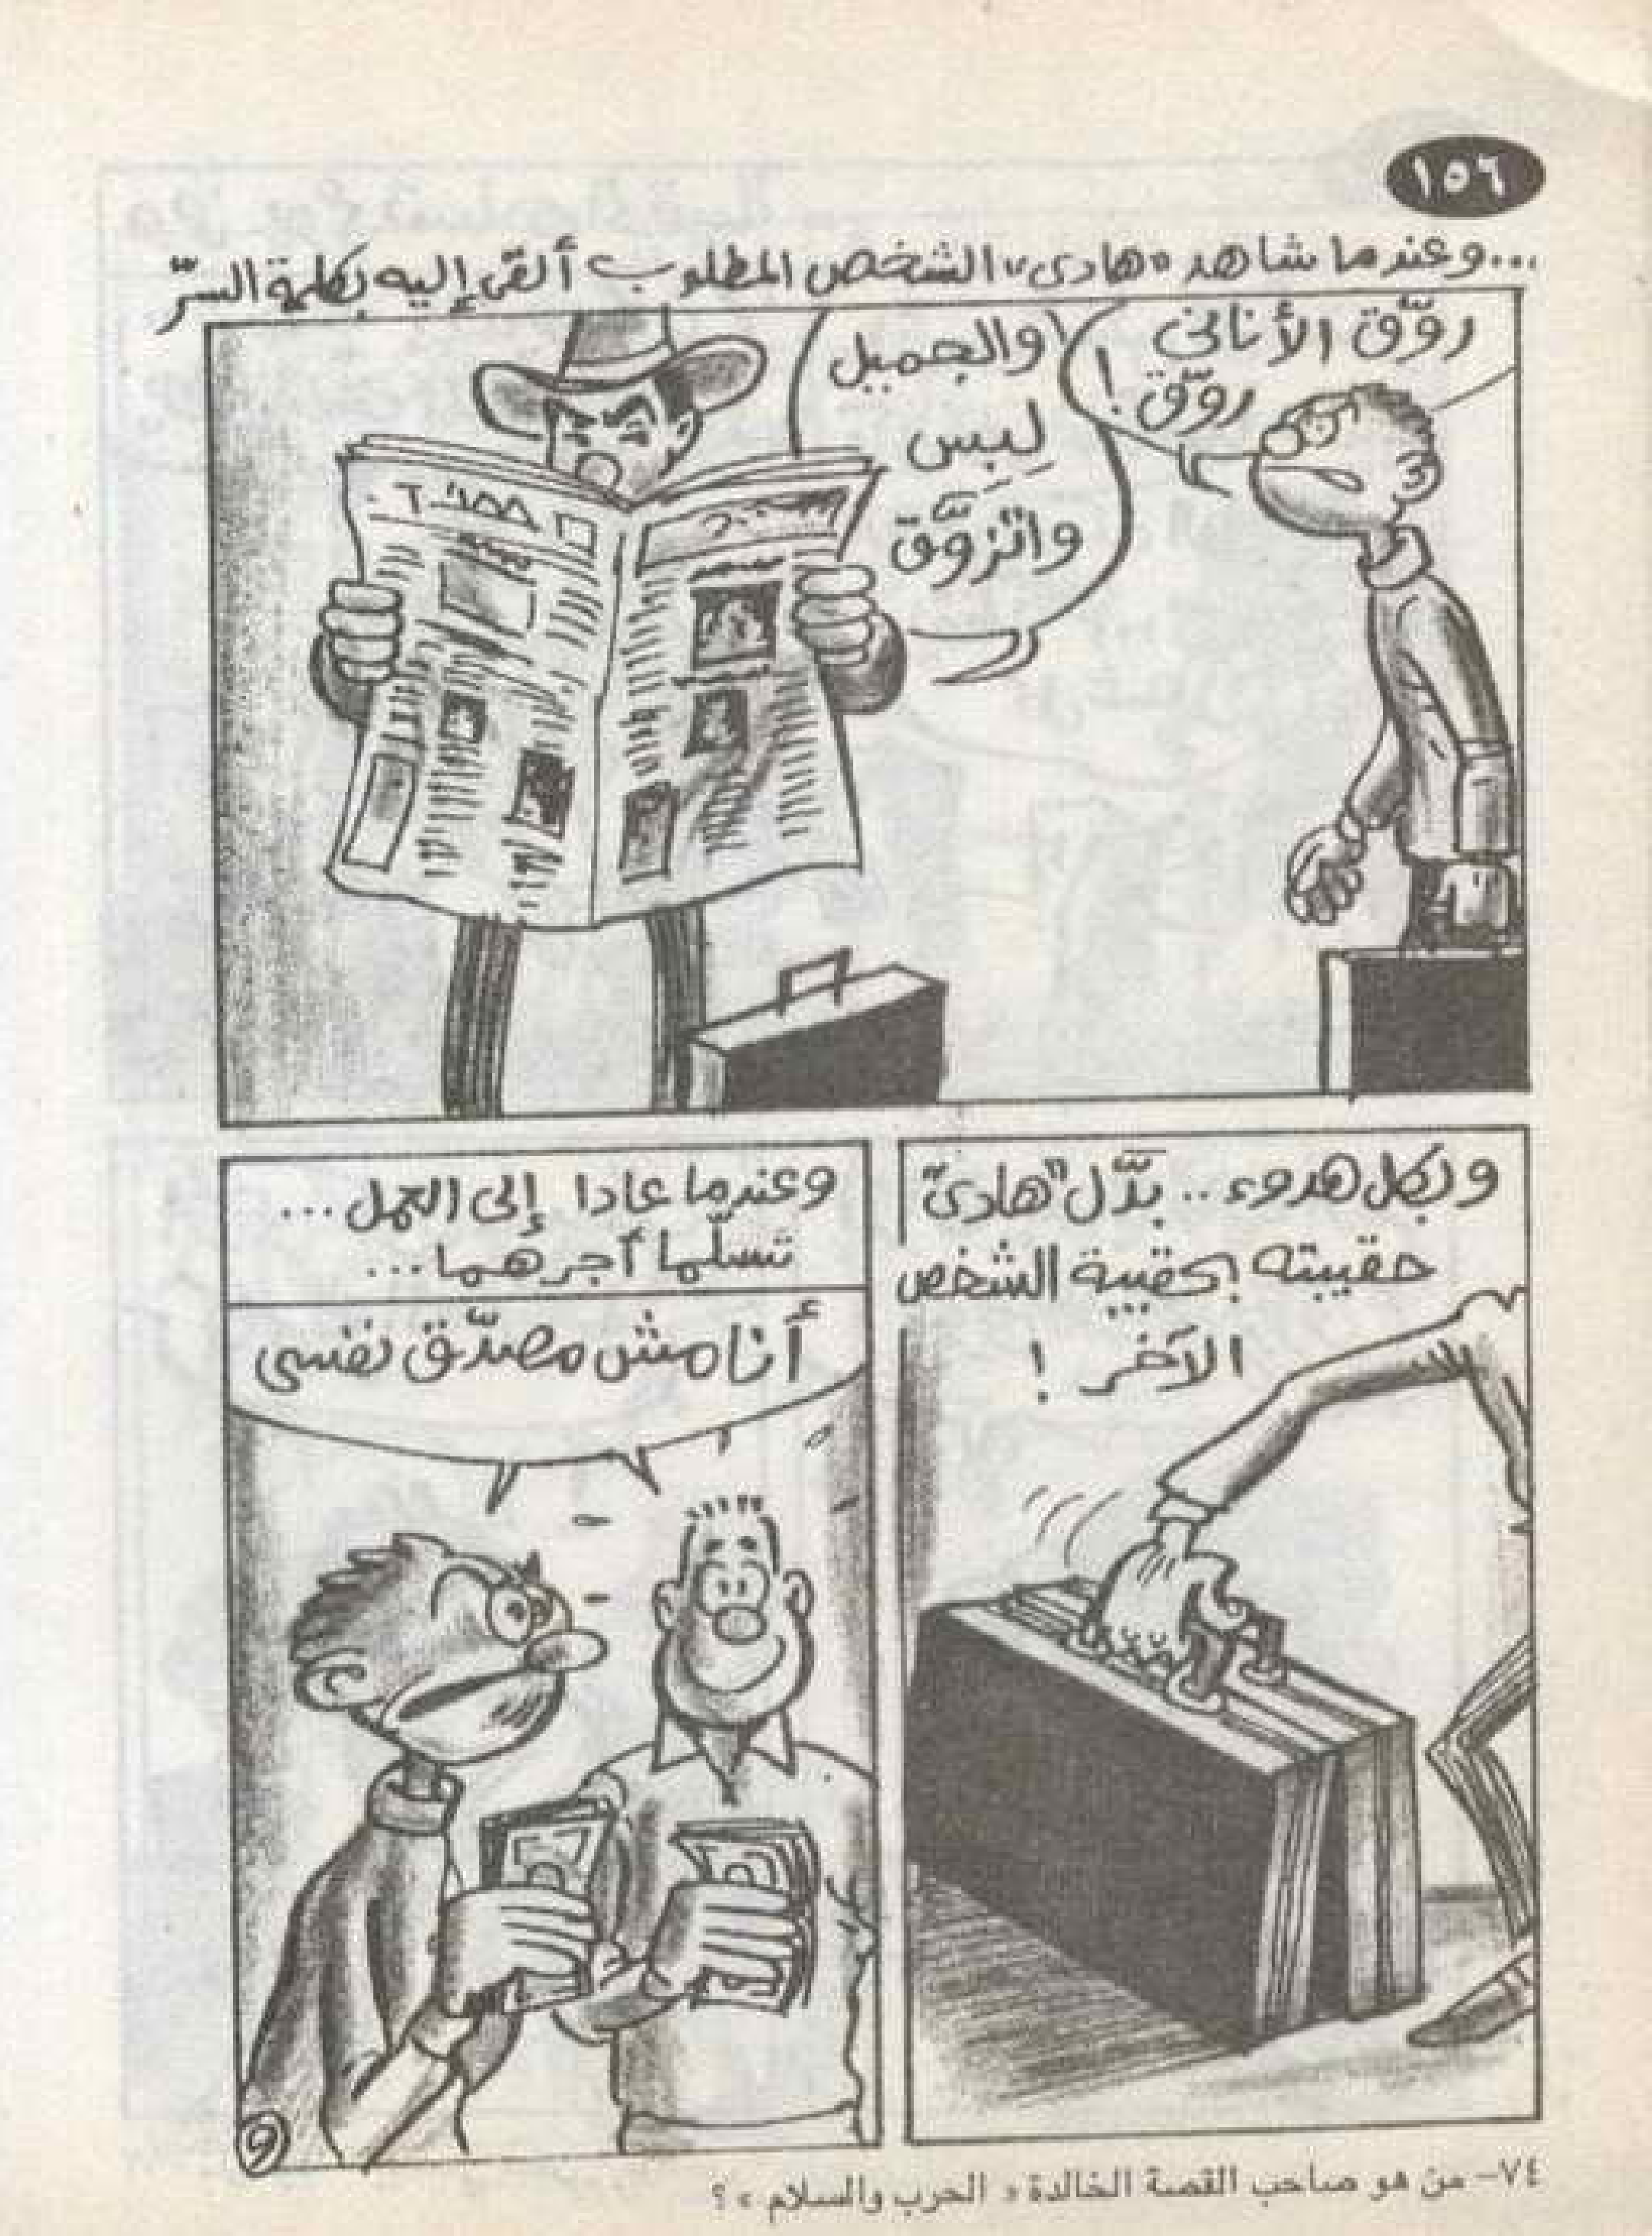 ١٥٦
...وعندما شاهد "هادى" الشخص المطلوب ألقى إليه بكلمة السرّ
روّق الأنانى
روّق !
والجميل
لِبِس
واتْزَوَّق
وبكل هدوء .. بدَّل "هادى"
حقيبته بحقيبة الشخص
الآخر !
وعندما عادا إلى العمل ...
تسلّما أجرهما ...
أنا مش مصدّق نفسى
٩
٧٤- من هو صاحب القصة الخالدة « الحرب والسلام » ؟